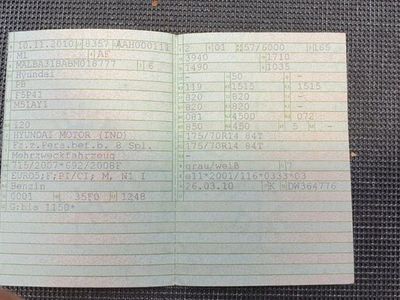 10.11.2010 8357 AAH000111
M1 AF
MALBA31BABM018777 6
Hyundai
PB
F5P41
M5IAY1
i20
HYUNDAI MOTOR (IND)
Fz.z.Pers.bef.b. 8 Spl.
Mehrzweckfahrzeug
715/2007*692/2008F
EURO5;F;PI/CI; M, N1 I
Benzin
0001 35F0 1248
G:bis 1150*
2 01 57/6000 165
3940 1710
1490 1035
- 50 -
119 1515 1515
820 820 -
820 820 -
081 4500 072
850 450 5 -
175/70R14 84T
175/70R14 84T
-
grau/weiß 7
e11*2001/116*0333*03
26.03.10 K DW364776